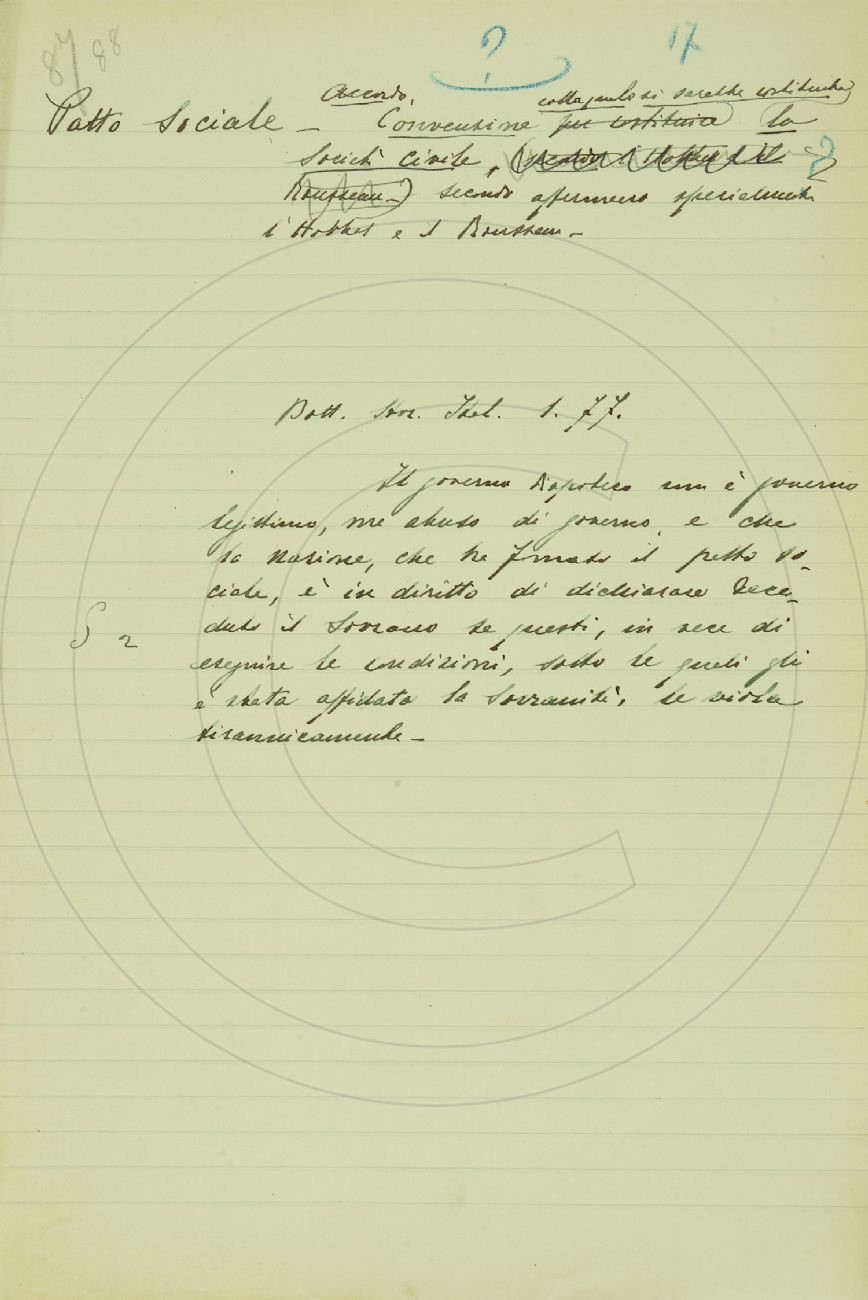 87 88
? 17
Accordo, colla quale si sarebbe costituita
Patto Sociale – Convenzione per costituire la
Società civile, (secondo l'Hobbes e il
Rousseau –) secondo affermano specialmente
l'Hobbes e il Rousseau –
Bott. Stor. Ital. 1. 77.
Il governo dispotico non è governo
legittimo, ma abuso di governo, e che
la nazione, che ha formato il patto so-
ciale, è in diritto di dichiarare deca-
duto il Sovrano se questi, in vece di
eseguire le condizioni, sotto le quali gli
è stata affidata la Sovranità, le viola
S 2
tirannicamente –